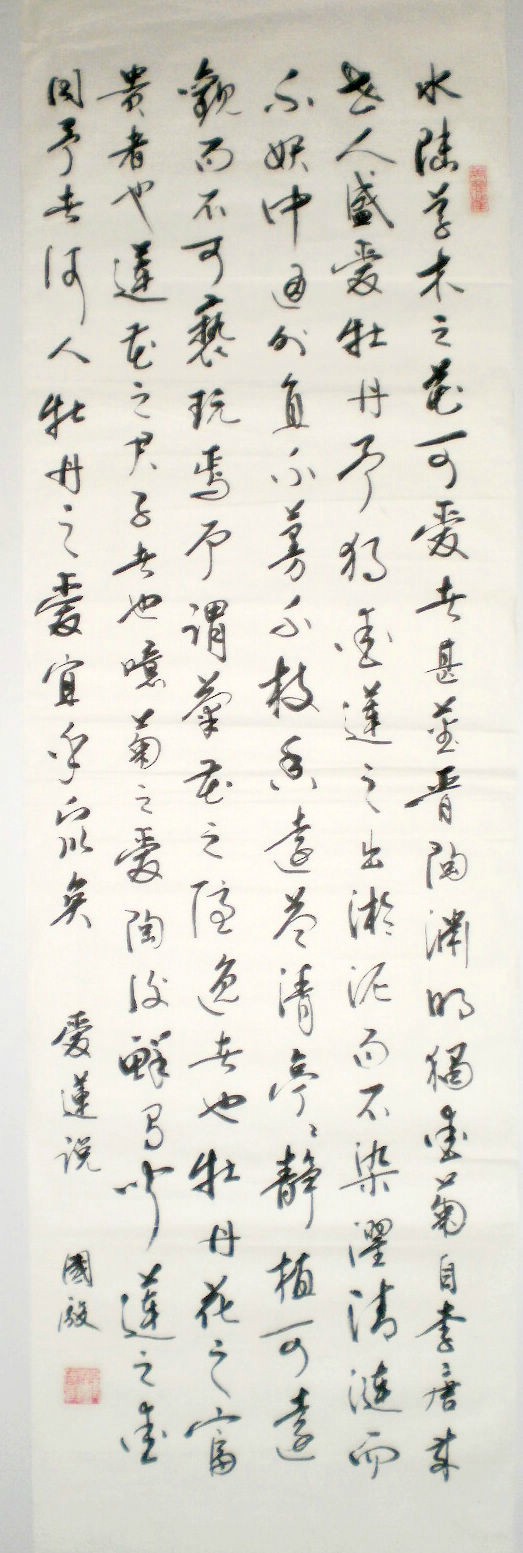 水陸草木之花可愛者甚蕃晋陶淵明獨愛菊自李唐来
世人盛愛牡丹予獨愛蓮之出淤泥而不染濯清漣而
不妖中通外直不蔓不枝香遠益清亭々静植可遠
觀而不可褻玩焉予謂菊花之隱逸者也牡丹花之富
貴者也蓮花之君子者也噫菊之愛陶後鮮有聞蓮之愛
同予者何人牡丹之愛宜乎眾矣 愛蓮説 國